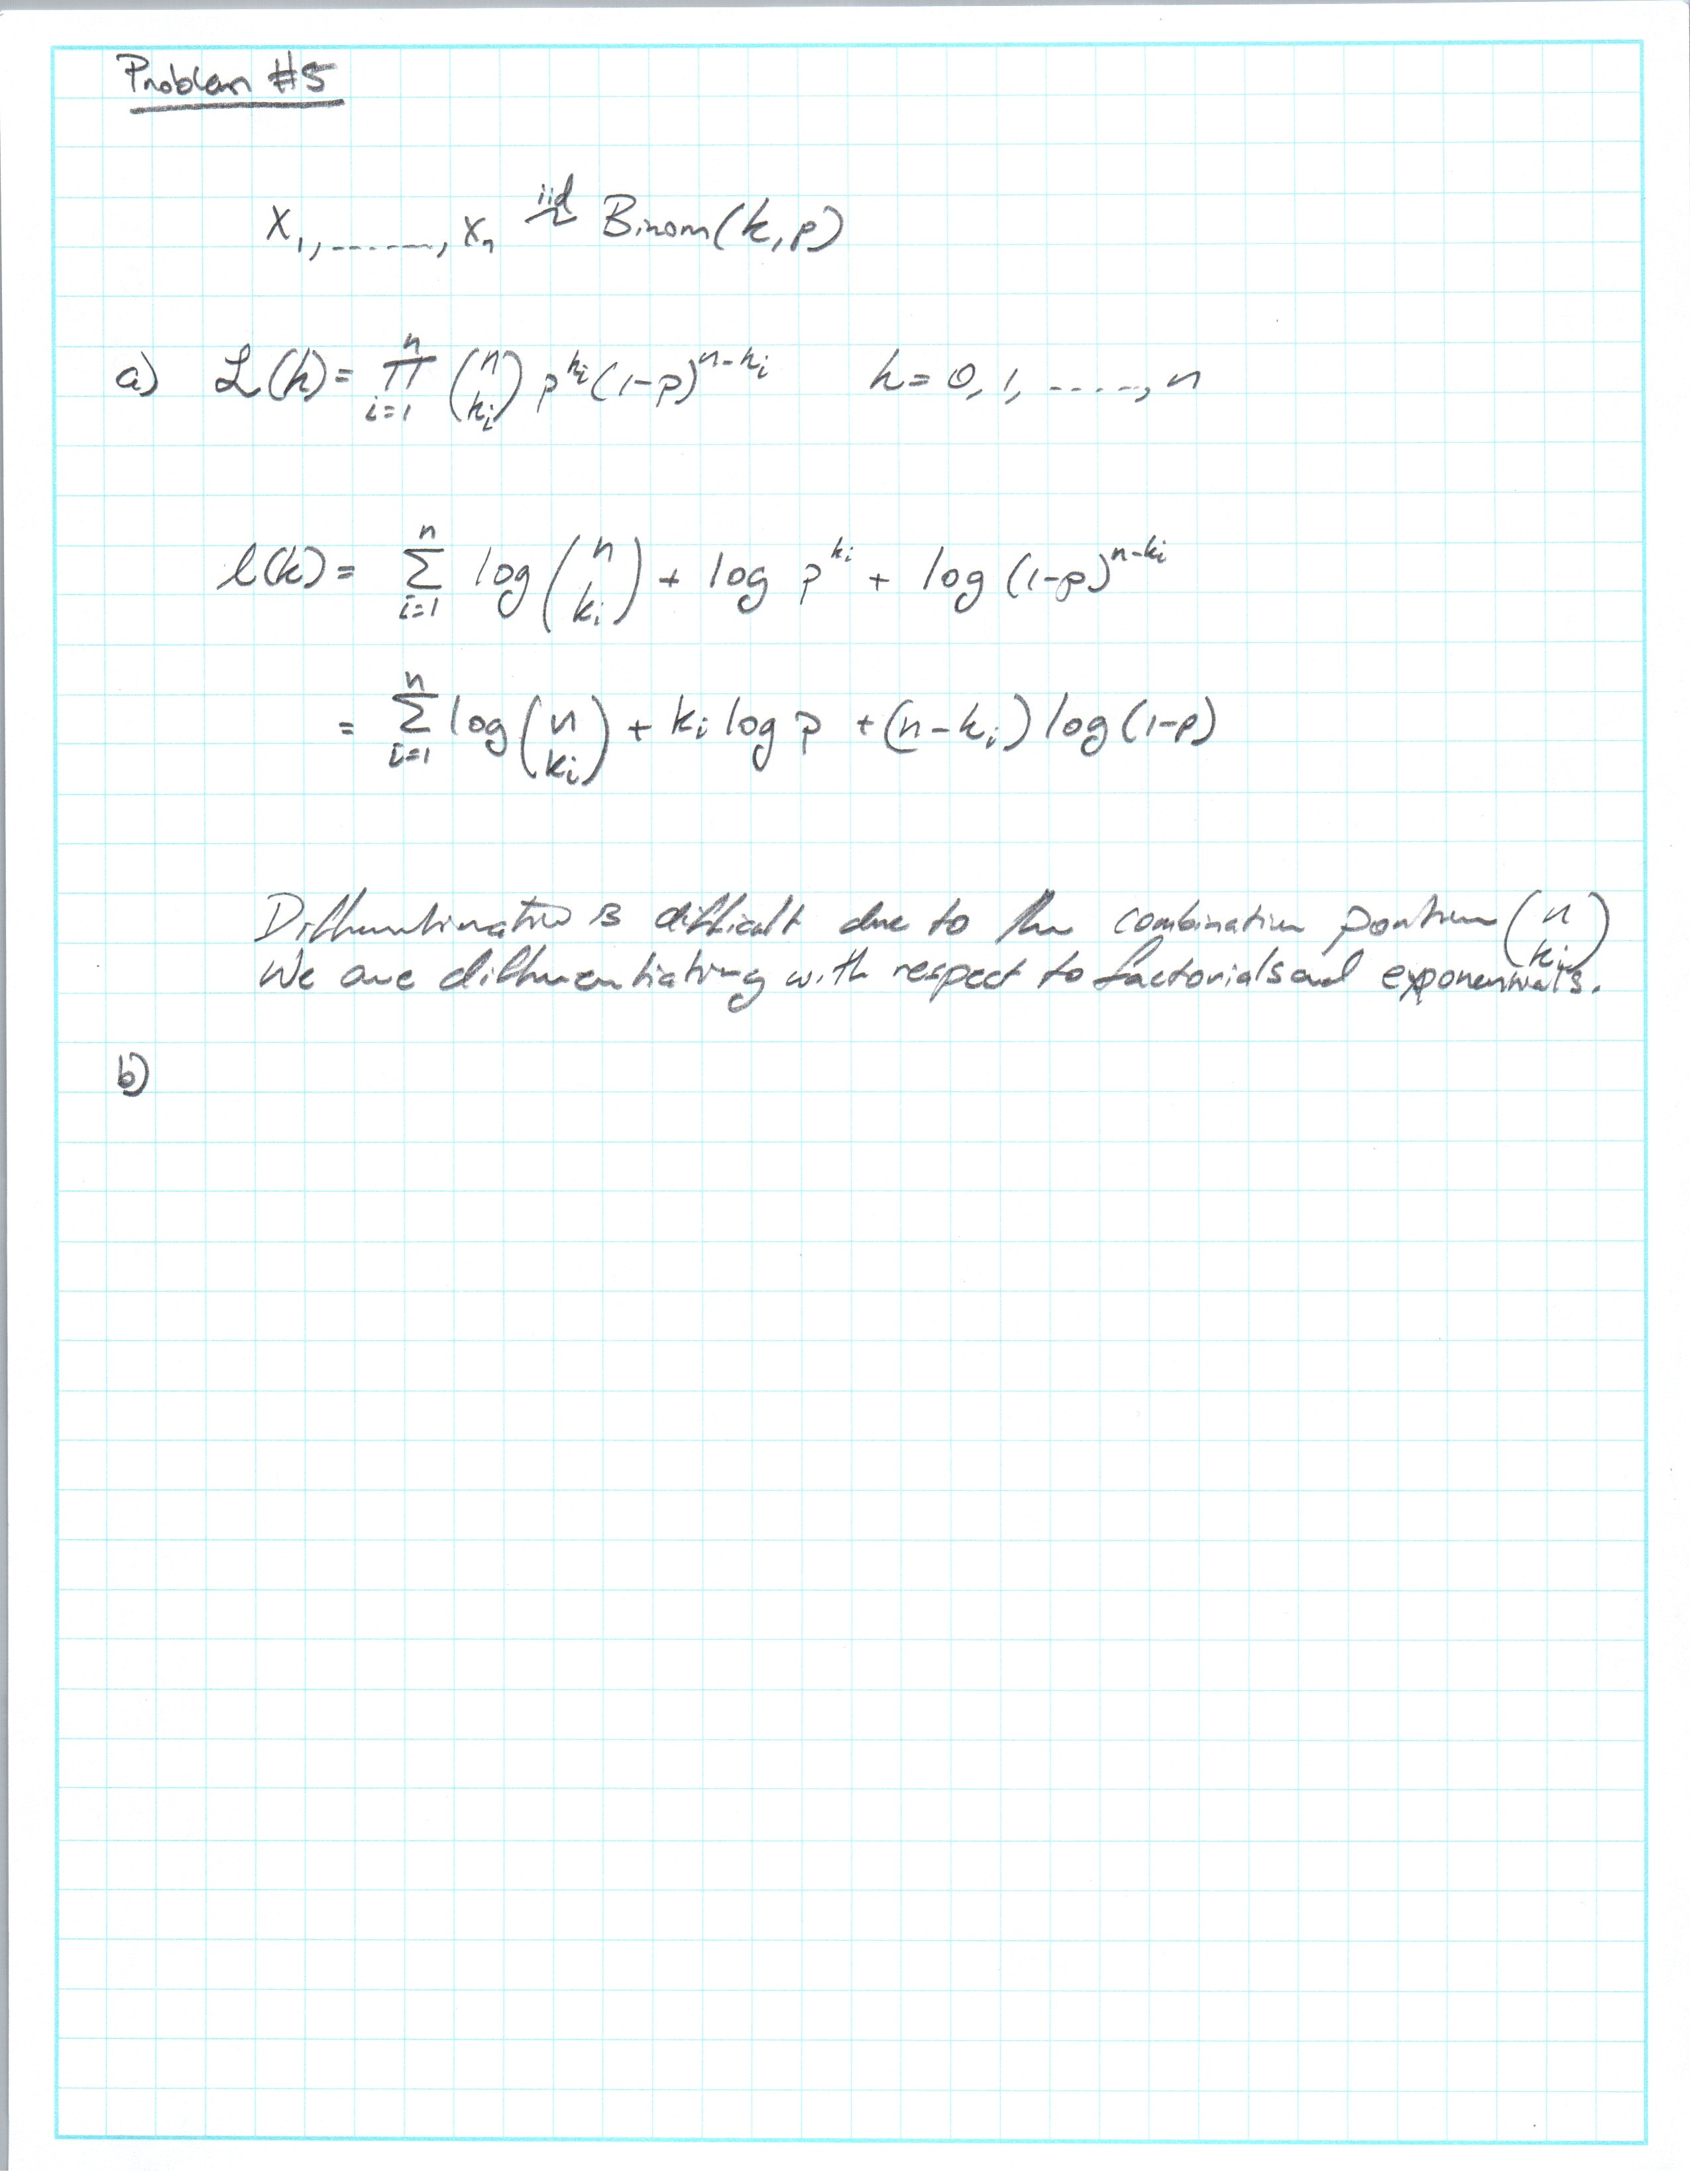 Problem #5
X₁,......., Xₙ iid ~ Binom(k,p)
a) L(k) = ∏ᵢ₌₁ⁿ (n kᵢ) p^kᵢ (1-p)^n-kᵢ k = 0, 1, ....., n
l(k) = Σᵢ₌₁ⁿ log (n kᵢ) + log p^kᵢ + log (1-p)^n-kᵢ
= Σᵢ₌₁ⁿ log (n kᵢ) + kᵢ log p + (n-kᵢ) log (1-p)
is difficult due to the combination portion (n kᵢ)
We are differentiating with respect to factorials and exponentials.
b)